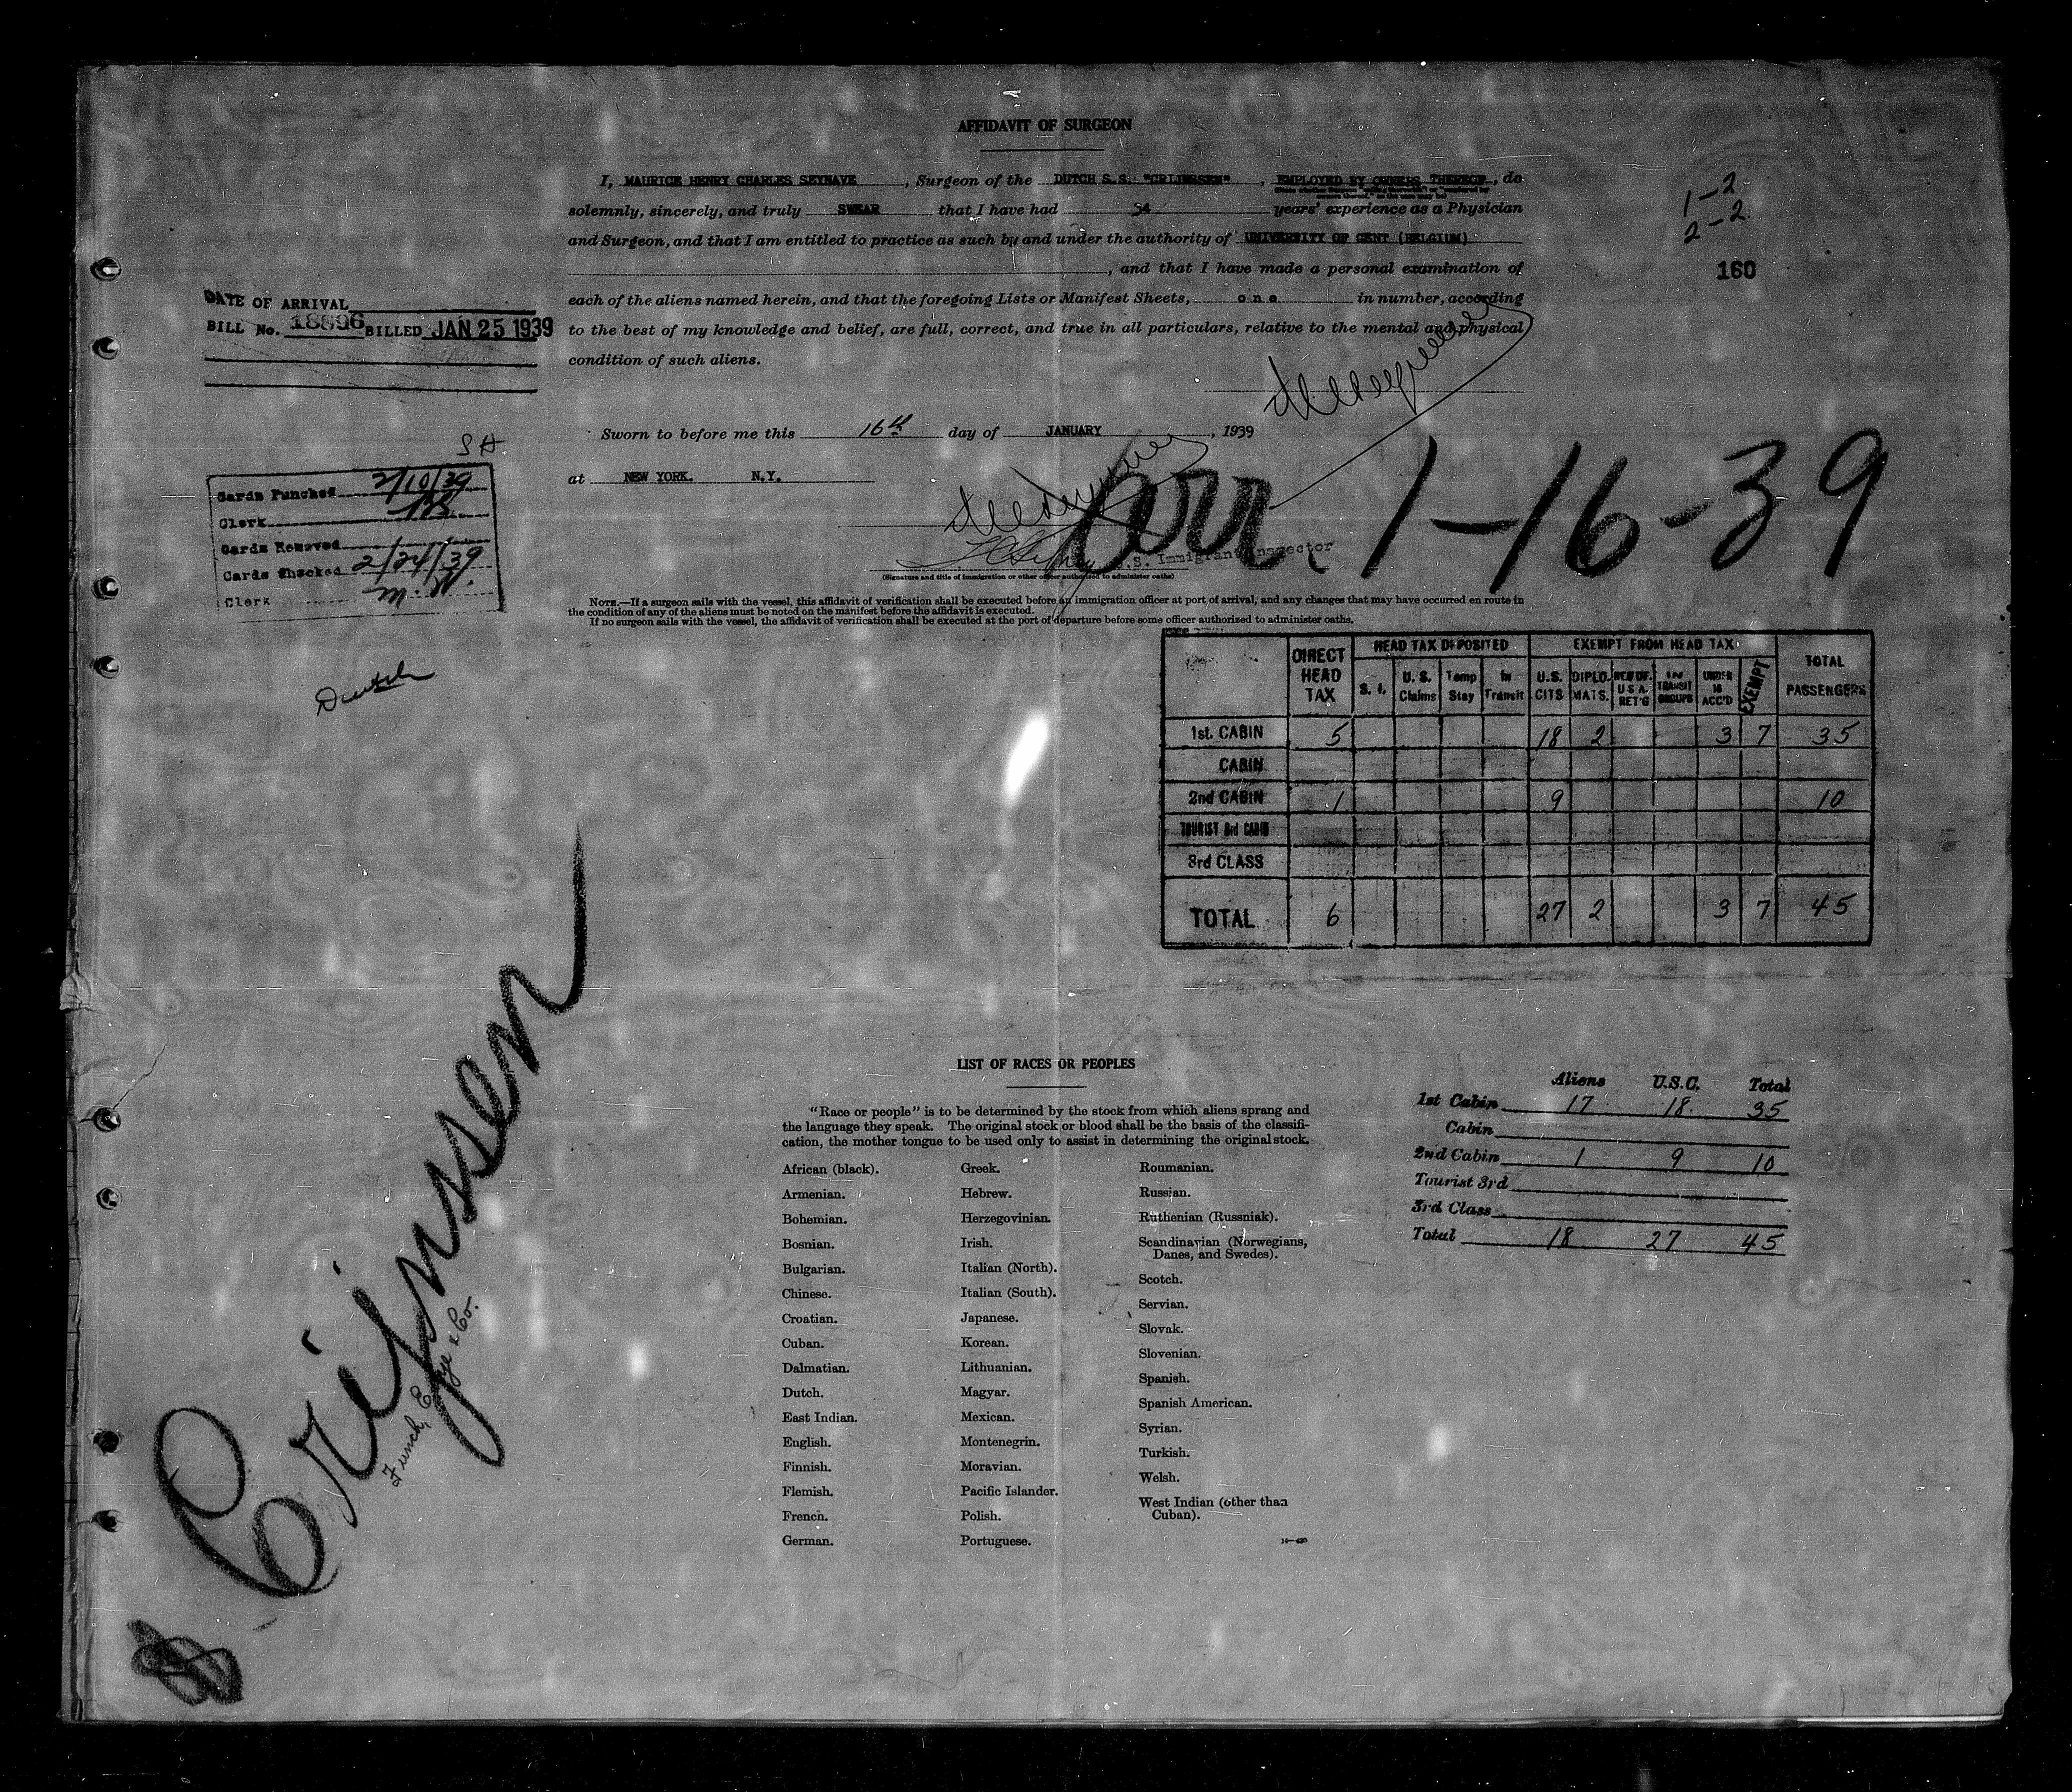 AFFIDAVIT OF SURGEON
I, MAURICE HENRY CHARLES SEYNAVE, Surgeon of the DUTCH S.S. "CRIJNSSEN", EMPLOYED BY OWNERS THEREOF, do
solemnly, sincerely, and truly SWEAR that I have had 34 years' experience as a Physician
and Surgeon, and that I am entitled to practice as such by and under the authority of UNIVERSITY OF GENT (BELGIUM)
, and that I have made a personal examination of
each of the aliens named herein, and that the foregoing Lists or Manifest Sheets, one in number, according
to the best of my knowledge and belief, are full, correct, and true in all particulars, relative to the mental and physical
condition of such aliens.
1-2
2-2
160
DATE OF ARRIVAL
BILL No. 18896 BILLED JAN 25 1939
Sworn to before me this 16th day of JANUARY, 1939
at NEW YORK. N.Y.
arr. 1-16-39
U.S. Immigrant Inspector
(Signature and title of immigration or other officer authorized to administer oaths)
SH
Cards Punched 2/10/39
Clerk
Cards Removed
Cards Checked 2/24/39
Clerk M.W.
NOTE.—If a surgeon sails with the vessel, this affidavit of verification shall be executed before an immigration officer at port of arrival, and any changes that may have occurred en route in
the condition of any of the aliens must be noted on the manifest before the affidavit is executed.
If no surgeon sails with the vessel, the affidavit of verification shall be executed at the port of departure before some officer authorized to administer oaths.
Dutch
DIRECT HEAD TAX HEAD TAX DEPOSITED EXEMPT FROM HEAD TAX TOTAL PASSENGERS
S. I. U. S. Claims Temp Stay In Transit U.S. CITS DIPLOMATS. RES OF. U S A. RET'G IN TRANSIT GROUPS UNDER 16 ACC'D EXEMPT
1st. CABIN 5 18 2 3 7 35
CABIN
2nd CABIN 1 9 10
TOURIST 3rd CABIN
3rd CLASS
TOTAL 6 27 2 3 7 45
Crijnssen
Funch, Edye & Co.
LIST OF RACES OR PEOPLES
"Race or people" is to be determined by the stock from which aliens sprang and
the language they speak. The original stock or blood shall be the basis of the classifi-
cation, the mother tongue to be used only to assist in determining the original stock.
African (black).
Armenian.
Bohemian.
Bosnian.
Bulgarian.
Chinese.
Croatian.
Cuban.
Dalmatian.
Dutch.
East Indian.
English.
Finnish.
Flemish.
French.
German.
Greek.
Hebrew.
Herzegovinian.
Irish.
Italian (North).
Italian (South).
Japanese.
Korean.
Lithuanian.
Magyar.
Mexican.
Montenegrin.
Moravian.
Pacific Islander.
Polish.
Portuguese.
Roumanian.
Russian.
Ruthenian (Russniak).
Scandinavian (Norwegians,
Danes, and Swedes).
Scotch.
Servian.
Slovak.
Slovenian.
Spanish.
Spanish American.
Syrian.
Turkish.
Welsh.
West Indian (other than
Cuban).
Aliens U.S.C. Total
1st Cabin 17 18 35
Cabin
2nd Cabin 1 9 10
Tourist 3rd
3rd Class
Total 18 27 45